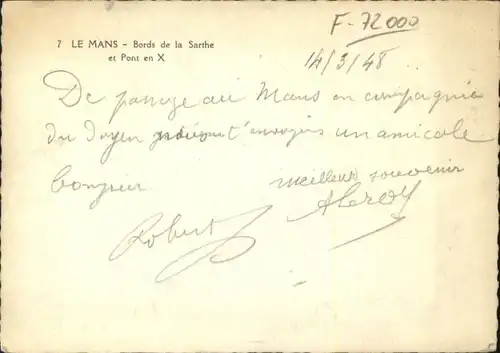 F-72000
7 LE MANS - Bords de la Sarthe
et Pont en X
14/3/48
De passage au Mans en compagnie
du Doyen t'envoyer un amicale
bonjour
meilleur souvenir
Robert